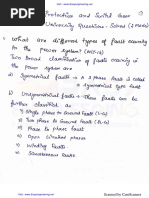 Protection and Switch Gear
University Question - Solved (2 Marks)
1. What are different types of fault occuring
to the power system? (A/C-16)
Two Broad classification of faults occuring in
the power system are
a) Symmetrical faults → A 3 phase fault is called
a symmetrical fault
b) Unsymmetrical faults → These faults can be
further classified as
i) Single phase to Ground fault (L-G)
ii) Two phase to Ground fault (L-L-G)
iii) Phase to phase fault
iv) Open circuited phases
v) Winding faults
vi) Simultaneous faults
Scanned by CamScanner